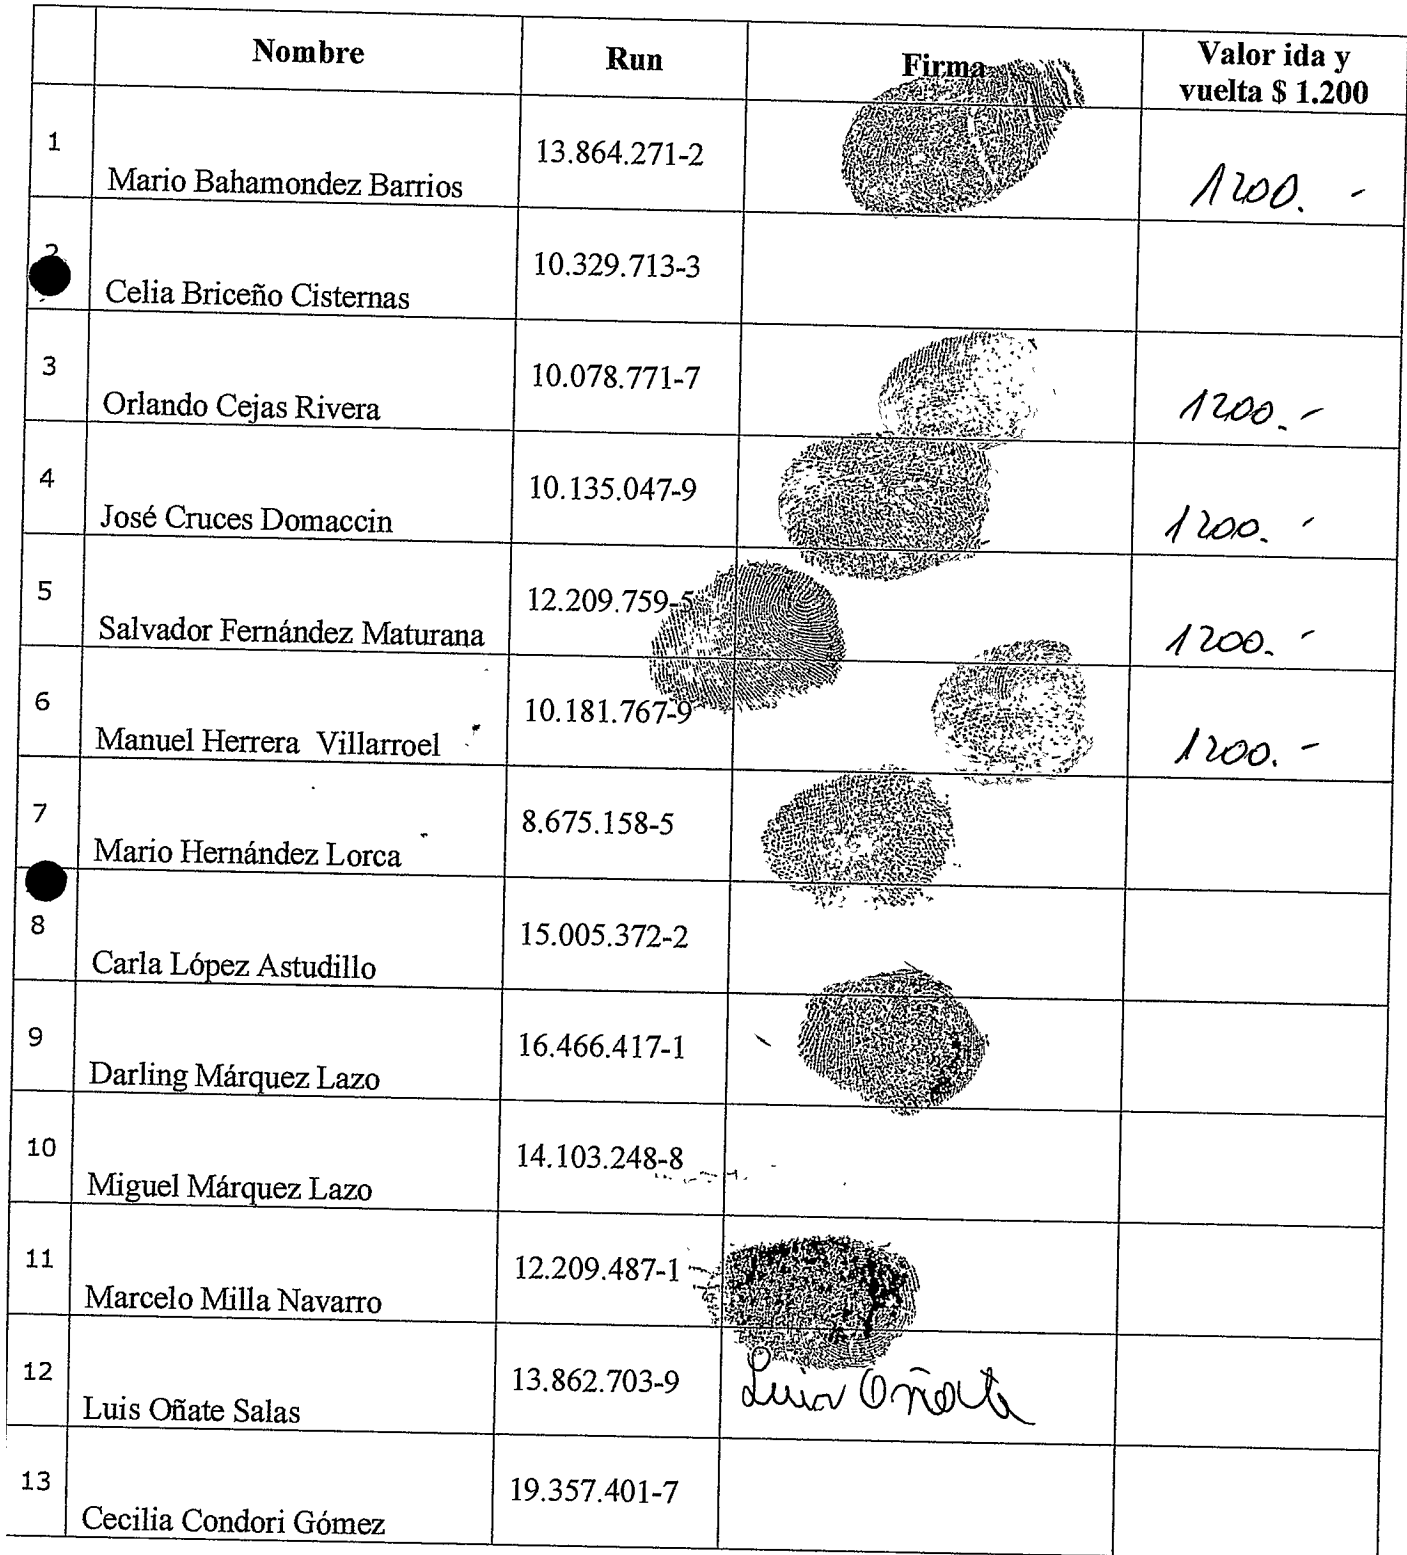 Nombre Run Firma Valor ida y
vuelta $ 1.200
1 Mario Bahamondez Barrios 13.864.271-2 1200.-
2 Celia Briceño Cisternas 10.329.713-3
3 Orlando Cejas Rivera 10.078.771-7 1200.-
4 José Cruces Domaccin 10.135.047-9 1200.-
5 Salvador Fernández Maturana 12.209.759-5 1200.-
6 Manuel Herrera Villarroel 10.181.767-9 1200.-
7 Mario Hernández Lorca 8.675.158-5
8 Carla López Astudillo 15.005.372-2
9 Darling Márquez Lazo 16.466.417-1
10 Miguel Márquez Lazo 14.103.248-8
11 Marcelo Milla Navarro 12.209.487-1
12 Luis Oñate Salas 13.862.703-9 Luis Oñate
13 Cecilia Condori Gómez 19.357.401-7